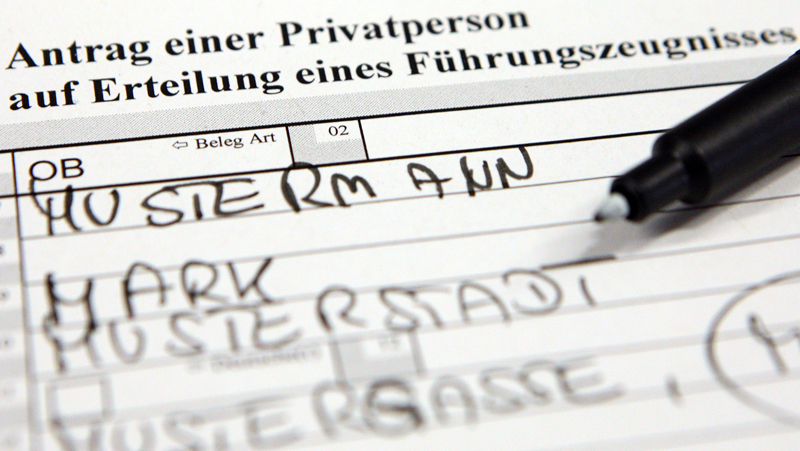 Antrag einer Privatperson
auf Erteilung eines Führungszeugnisses
⇦ Beleg Art 02
OB
MUSTERMANN
MARK
MUSTERSTADT
MUSTERGASSE,